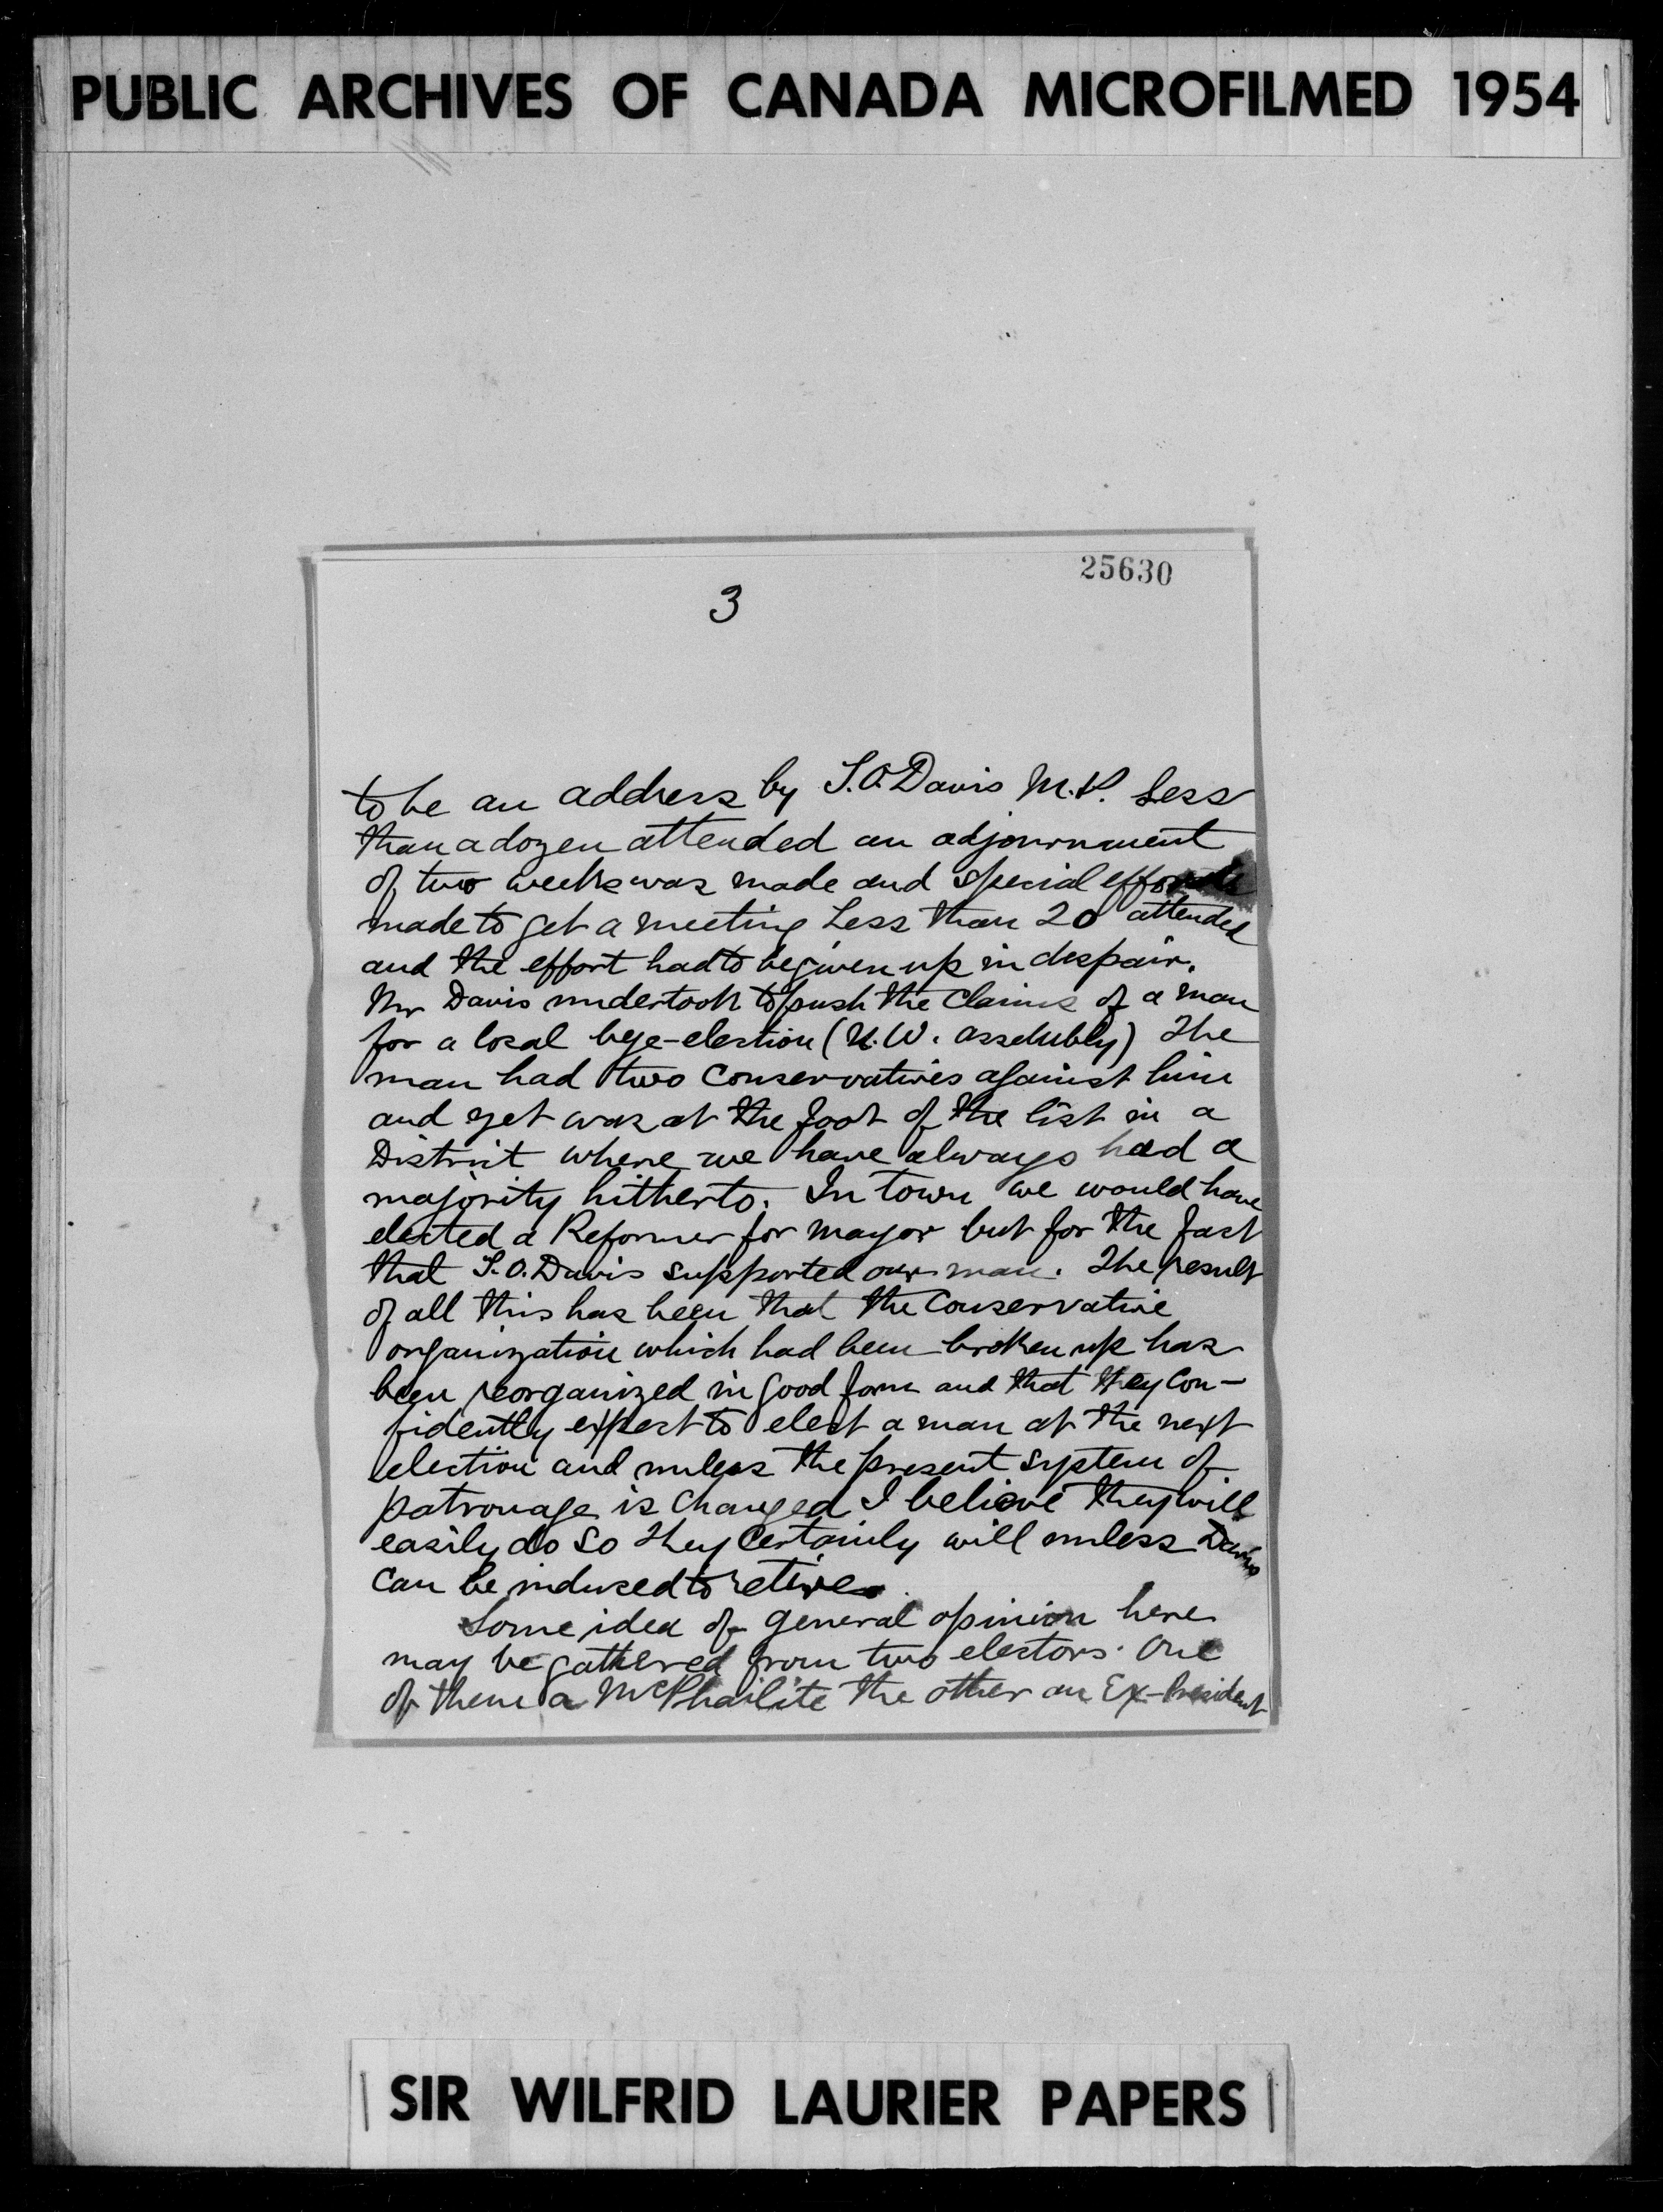 PUBLIC ARCHIVES OF CANADA MICROFILMED 1954
25630
3
to be an address by T.O. Davis M.P. Less
than a dozen attended an adjournment
of two weeks was made and special efforts
made to get a meeting Less than 20 attended
and the effort had to be given up in despair.
Mr Davis undertook to push the claims of a man
for a local bye-election (N.W. assembly) The
man had two Conservatives against him
and yet was at the foot of the list in a
District where we have always had a
majority hitherto. In town we would have
elected a Reformer for mayor but for the fact
that T.O. Davis supported our man. The result
of all this has been that the Conservative
organization which had been broken up has
been reorganized in good form and that they con-
fidently expect to elect a man at the next
election and unless the present system of
patronage is changed I believe they will
easily do so they certainly will unless Davis
can be induced to retire.
Some idea of general opinion here
may be gathered from two electors. One
of them a McPhailite the other an Ex-President
SIR WILFRID LAURIER PAPERS